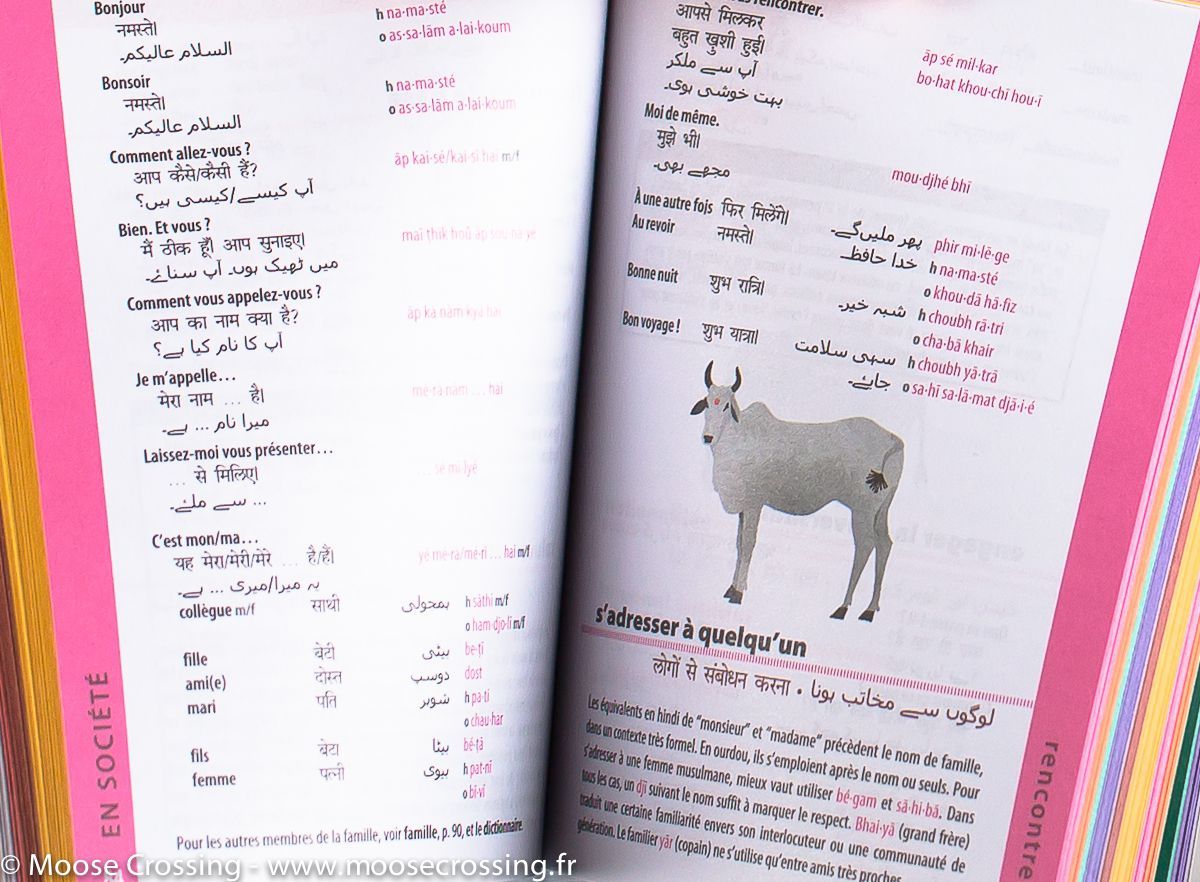 Bonjour
नमस्ते।
السلام عالیکم۔
h na·ma·sté
o as·sa·lām a·lai·koum
Bonsoir
नमस्ते।
السلام عالیکم۔
h na·ma·sté
o as·sa·lām a·lai·koum
Comment allez-vous ?
आप कैसे/कैसी हैं?
آپ کیسے/کیسی ہیں؟
āp kai·sé/kai·sī hai m/f
Bien. Et vous ?
मैं ठीक हूँ। आप सुनाइए।
میں ٹھیک ہوں۔ آپ سنائے۔
Comment vous appelez-vous ?
आप का नाम क्या है?
آپ کا نام کیا ہے؟
āp kā nām kyā hai
Je m'appelle…
मेरा नाम … है।
میرا نام ... ہے۔
mé·rā nām … hai
Laissez-moi vous présenter…
… से मिलिए।
... سے ملئے۔
… sé mi·lyé
C'est mon/ma…
यह मेरा/मेरी/मेरे … है/हैं।
یہ میرا/میری ... ہے۔
yé mé·rā/mé·rī … hai m/f
collègue m/f साथी
h sāthī m/f
o ham·djo·lī m/f
fille बेटी بیٹی bé·ṭī
ami(e) दोस्त دوست dost
mari पति شوہر h pa·ti
o chau·har
fils बेटा بیٹا bé·ṭā
femme पत्नी بیوی h pat·nī
o bī·vī
Pour les autres membres de la famille, voir famille, p. 90, et le dictionnaire.
EN SOCIÉTÉ
rencontrer.
आपसे मिलकर
बहुत खुशी हुई।
آپ سے ملکر
بہت خوشی ہوی۔
āp sé mil·kar
bo·hat khou·chī hou·ī
Moi de même.
मुझे भी।
مجھے بھی۔
mou·djhé bhī
À une autre fois फिर मिलेंगे। پھر ملیں گے۔ phir mi·lē·ge
Au revoir नमस्ते। خدا حافظ۔ h na·ma·sté
o khou·dā hā·fiz
Bonne nuit शुभ रात्रि। شبہ خیر۔ h choubh rā·tri
o cha·bā khair
Bon voyage ! शुभ यात्रा। سہی سلامت h choubh yā·trā
جائے۔ o sa·hī sa·lā·mat djā·i·é
s'adresser à quelqu'un
लोगों से संबोधन करना • لوگوں سے مخاتب ہونا
Les équivalents en hindi de "monsieur" et "madame" précèdent le nom de famille,
dans un contexte très formel. En ourdou, ils s'emploient après le nom ou seuls. Pour
s'adresser à une femme musulmane, mieux vaut utiliser bé·gam et sā·hi·bā. Dans
tous les cas, un djī suivant le nom suffit à marquer le respect. Bhai·yā (grand frère)
traduit une certaine familiarité envers son interlocuteur ou une communauté de
génération. Le familier yār (copain) ne s'utilise qu'entre amis très proches.
rencontre
© Moose Crossing - www.moosecrossing.fr